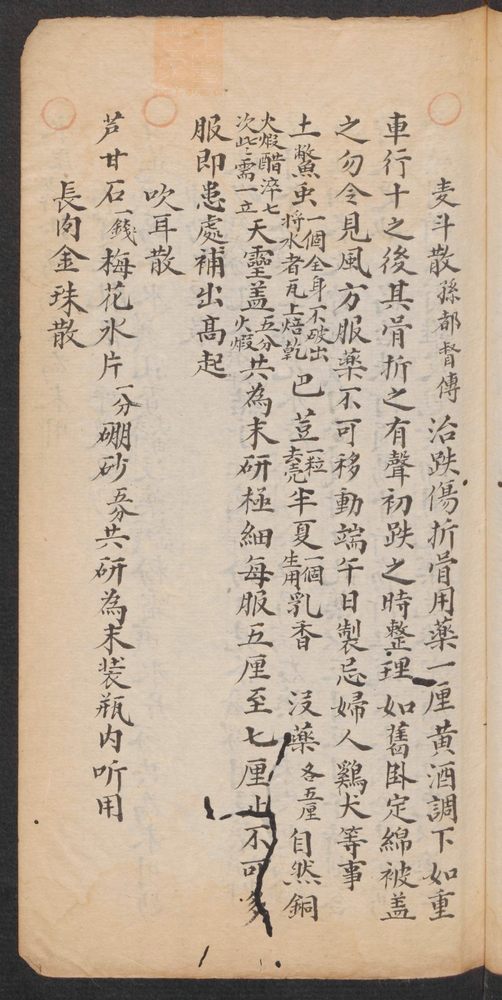 麦斗散孫都督傳 治跌傷折骨用薬一厘黄酒調下如重
車行十之後其骨折之有聲初跌之時整理如舊卧定綿被盖
之勿令見風方服薬不可移動端午日製忌婦人鷄犬等事
土鱉虫一個全身不破出将水者瓦上焙乾 巴荳一粒去壳 半夏一個生用 乳香 沒薬各五厘 自然銅
火煅醋淬七次此二需一立 天靈盖五分火煅 共為末研極細每服五厘至七厘止不可多
服即患處補出髙起
吹耳散
芦甘石一錢 梅花氷片一分 硼砂五分 共研為末装瓶内听用
長肉金珠散